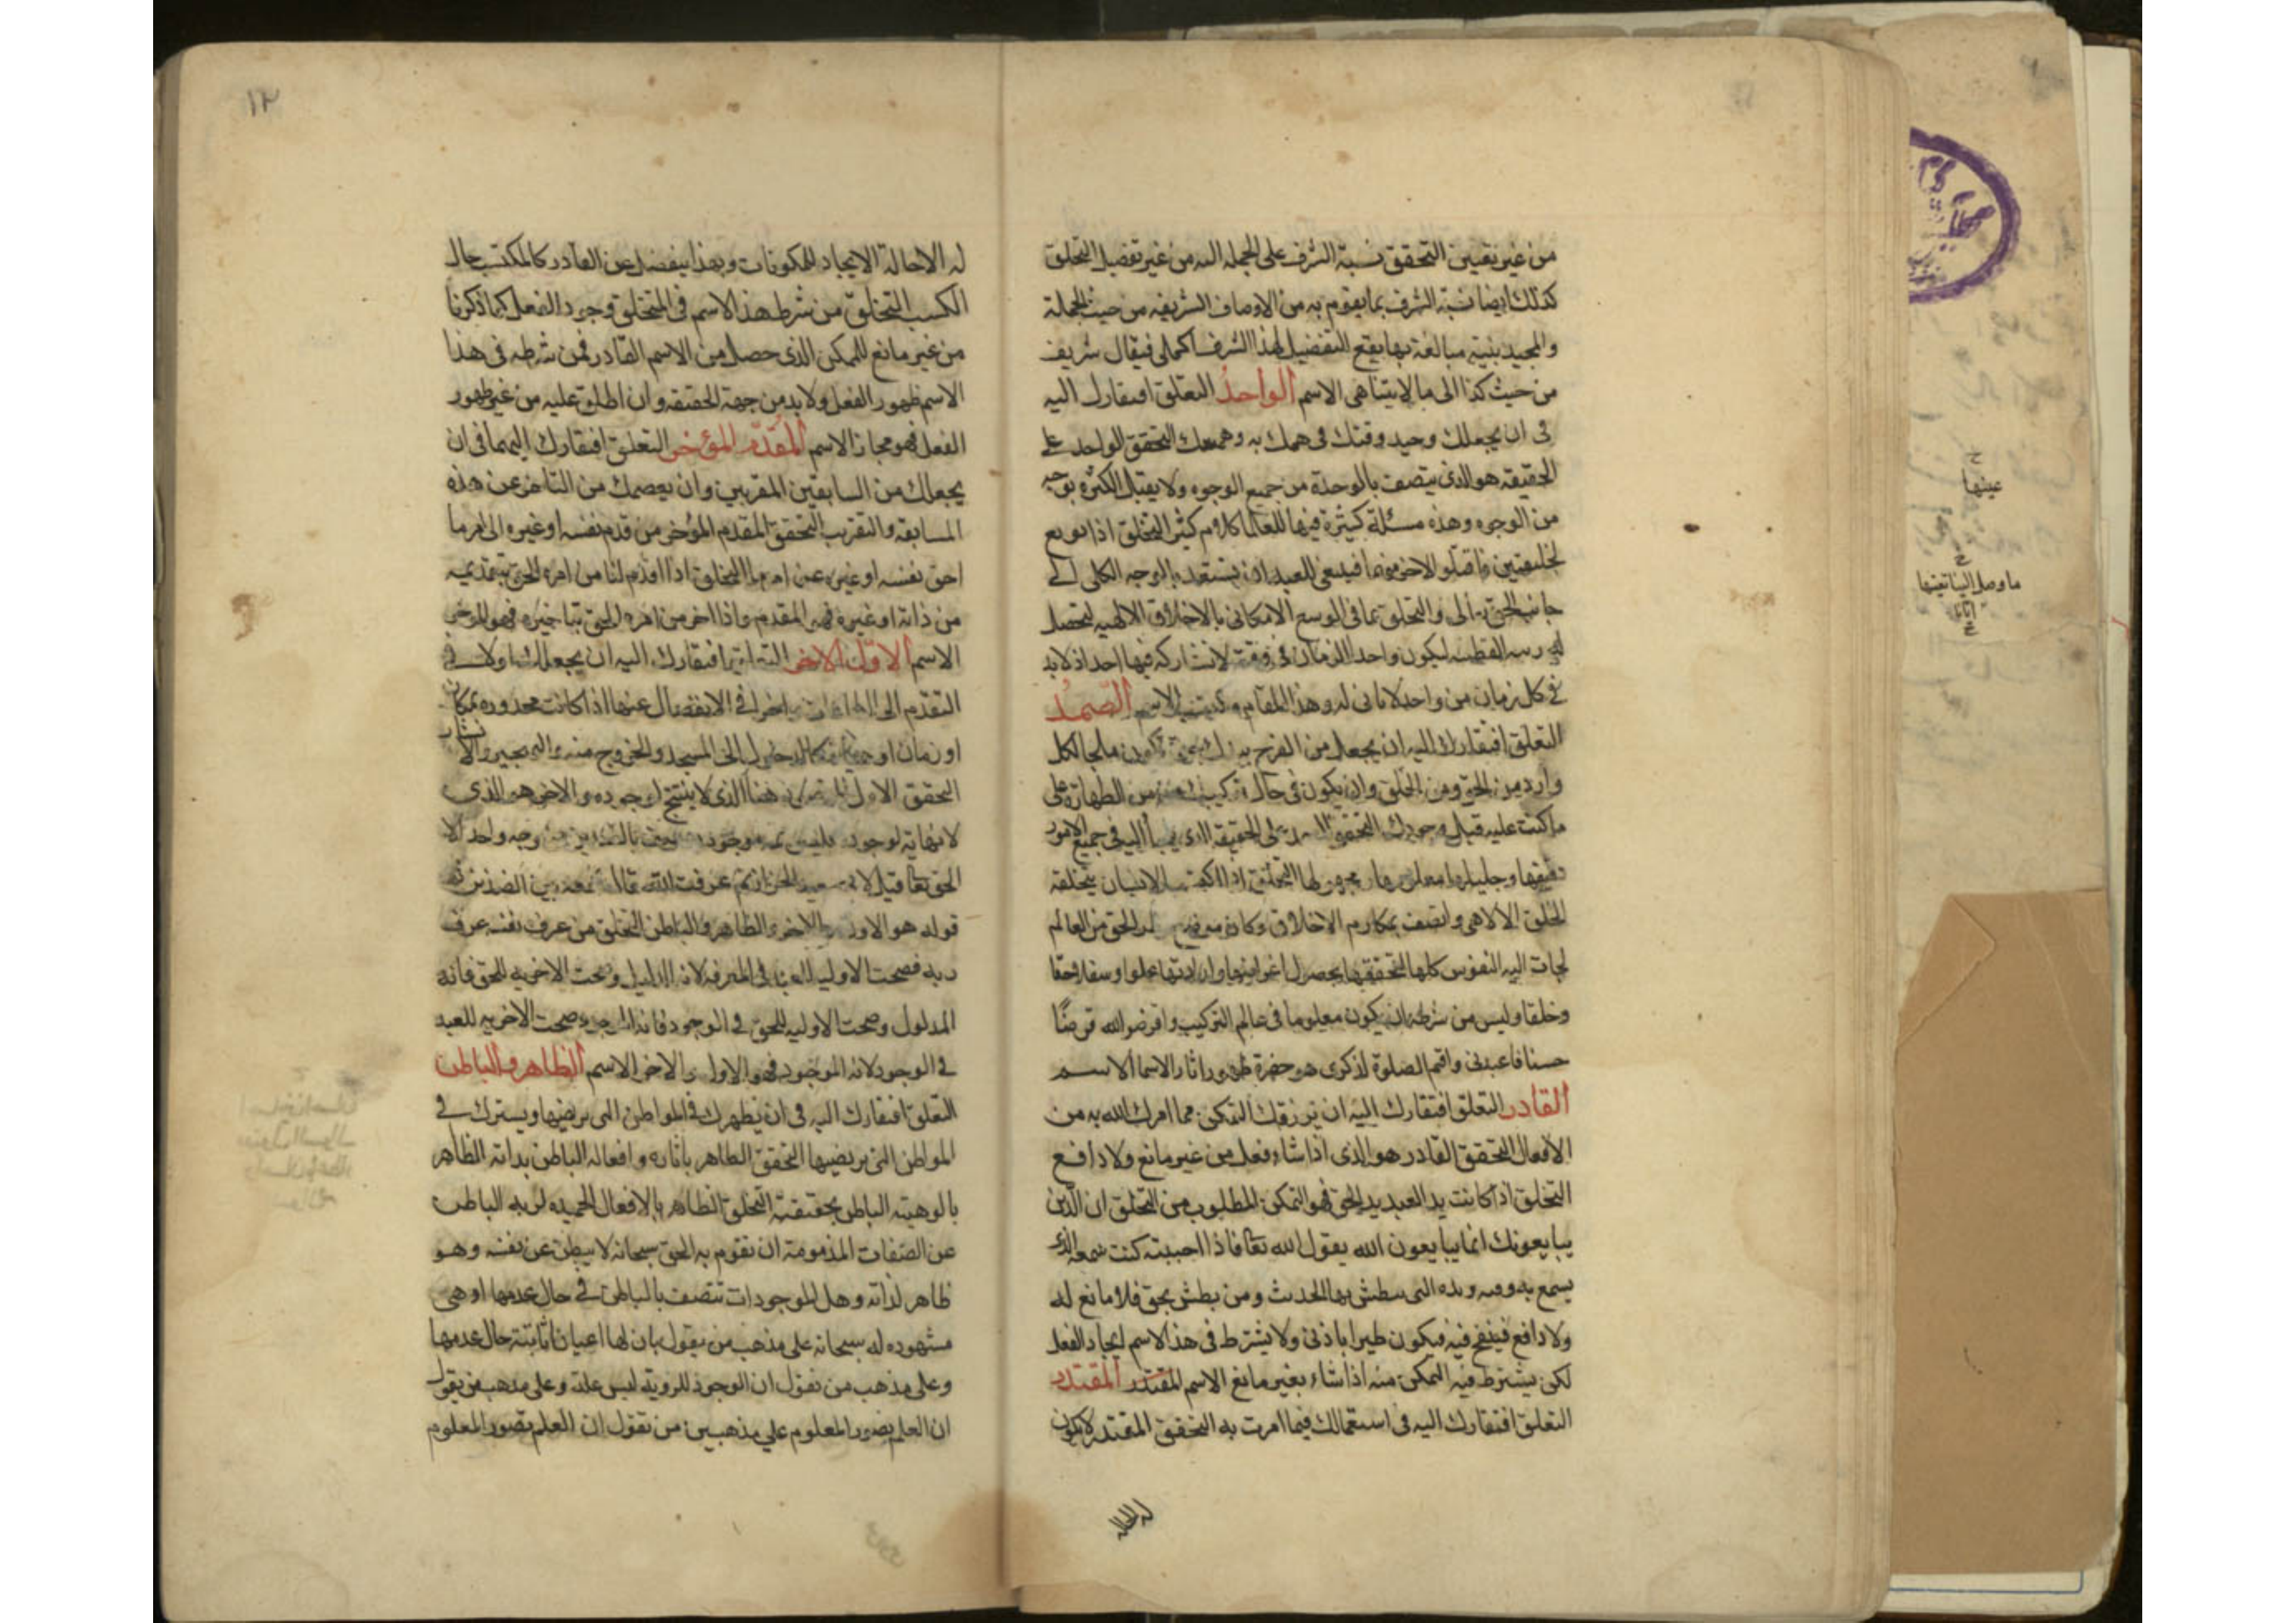 من غير تعيين التحقق نسبة الشرف على الجملة اليه من غير تفصيل التخلق
كذلك ايضا نسبة الشرف بما يقوم به من الاوصاف الشريفه من حيث الجملة
والمجيد بنية مبالغة بها يقع التفضيل لهذا الشرف الجملي فيقال شريف
من حيث كذا الى ما لا يتناهى الاسم الواحد التعلق افتقارك اليه
فى ان يجعلك وحيد وقتك فى همك به وهمتك التحقق الواحد على
الحقيقه هو الذى يتصف بالوحدة من جميع الوجوه ولا يقبل الكثرة بوجه
من الوجوه وهذه مسئلة كثيرة فيها للعلما كلام كثير التخلق اذا بويع
لخليفتين فاقتلو الاخر منهما فينبغى للعبد ان يستعد بالوجه الكلى الى
جانب الحق تعالى والتخلق بما فى الوسع الامكانى بالاخلاق الالهيه لتحصل
له رتبه القطب ليكون واحد الزمان فى وقته لا يشاركه فيها احد اذ لا بد
فى كل زمان من واحد لا ثانى له وهذا المقام مكتسب الاسم الصمد
التعلق افتقارك اليه ان يجعلك من الفرح به بحيث تكون ملجا لكل
وارد من الحق ومن الخلق وان يكون فى حال تركيبك من الطهارة على
ما كنت عليه قبل وجودك التحقق الصمد على الحقيقه الذى يلجأ اليه فى جميع الامور
دقيقها وجليلها معلومها ومجهولها التخلق اذا اكتسب الانسان بتخلقه
الخلق الالاهى واتصف بمكارم الاخلاق وكان لله الحق من العالم
لجات اليه النفوس كلها لتحققها بحصول اغراضها وارادتها علوا وسفلا وحقا
وخلقا وليس من شرطه ان يكون معلوما فى عالم التركيب واقرضو الله قرضًا
حسنا فاعبدنى واقم الصلوة لذكرى هو حضرة ظهور اثار الاسما الاسم
القادر التعلق افتقارك اليه ان يرزقك التمكن مما امرك الله به من
الافعال التحقق القادر هو الذى اذا شاء فعل من غير مانع ولا دافع
التخلق اذا كانت يد العبد يد الحق فهو التمكن المطلوب من التخلق ان الذين
يبايعونك انما يبايعون الله يقول الله تعا فاذا احببته كنت سمعه الذى
يسمع به ويده التى يبطش بها الحديث ومن بطش بحق فلا مانع له
ولا دافع فينفخ فيه فيكون طيرا باذنى ولا يشترط فى هذا الاسم ايجاد الفعل
لكن يشترط فيه التمكن منه اذا شاء بغير مانع الاسم المقتدر المقتدر
التعلق افتقارك اليه فى استعمالك فيما امرت به التحقق المقتدر لا يكون
له الاحالة
عينها
ما وصل الينا تعينها
١٢
له الاحالة الايجاد للمكونات وبهذا ينفصل عن القادر كالمكتسب حال
الكسب التخلق من شرط هذا الاسم فى المتخلق وجود الفعل كما ذكرنا
من غير مانع للممكن الذى حصل من الاسم القادر فمن شرطه فى هذا
الاسم ظهور الفعل ولا بد من جهة الحقيقه وان اطلق عليه من غير ظهور
الفعل فهو مجاز الاسم المقدّم المؤخر التعلق افتقارك اليهما فى ان
يجعلك من السابقين المقربين وان يعصمك من التاخر عن هذه
المسابقه والتقريب التحقق المقدم المؤخر من قدم نفسه او غيره الى امر ما
اخر نفسه او غيره عن امر ما التخلق اذا اقدم لنا من امره الحق بتقديمه
من ذاته او غيره فهو المقدم واذا اخر من امره الحق بتاخيره فهو المؤخر
الاسم الاول الاخر التعلق افتقارك اليه ان يجعلك اولا فى
التقدم الى الطاعات واخرا فى الانفصال عنها اذا كانت محدوده بمكان
او زمان او كالدخول الى المسجد والخروج منه
التحقق الاول هنا الذى لا يفتتح لوجوده والاخر هو الذى
لا نهاية لوجوده فليس موجود يتصف بالضدين من وجه واحد الا
الحق تعا قيل لابى سعيد الخراز بم عرفت الله قال بجمعه بين الضدين
قوله هو الاول والاخر والظاهر والباطن التخلق من عرف نفسه عرف
ربه فصحت الاوليه للعبد فى المعرفه لانه الدليل وصحت الاخريه للحق فانه
المدلول وصحت الاوليه للحق فى الوجود فانه الموجد وصحت الاخريه للعبد
فى الوجود لانه الموجود فهو الاول والاخر الاسم الظاهر والباطن
التعلق افتقارك اليه فى ان يظهرك فى المواطن التى يرتضيها ويسترك فى
المواطن التى يرتضيها التحقق الظاهر باثاره وافعاله الباطن بذاته الظاهر
بالوهيته الباطن بحقيقته التخلق الظاهر بالافعال الحميده لربه الباطن
عن الصفات المذمومة ان تقوم به الحق سبحانه لا يبطن عن نفسه وهو
ظاهر لذاته وهل الموجودات تتصف بالباطن فى حال عدمها او هى
مشهوده له سبحانه على مذهب من يقول بان لها اعيان ثابتة حال عدمها
وعلى مذهب من يقول ان الوجود للرويه ليس علة وعلى مذهب من يقول
ان العلم يصور المعلوم على مذهبين من يقول ان العلم يصور المعلوم